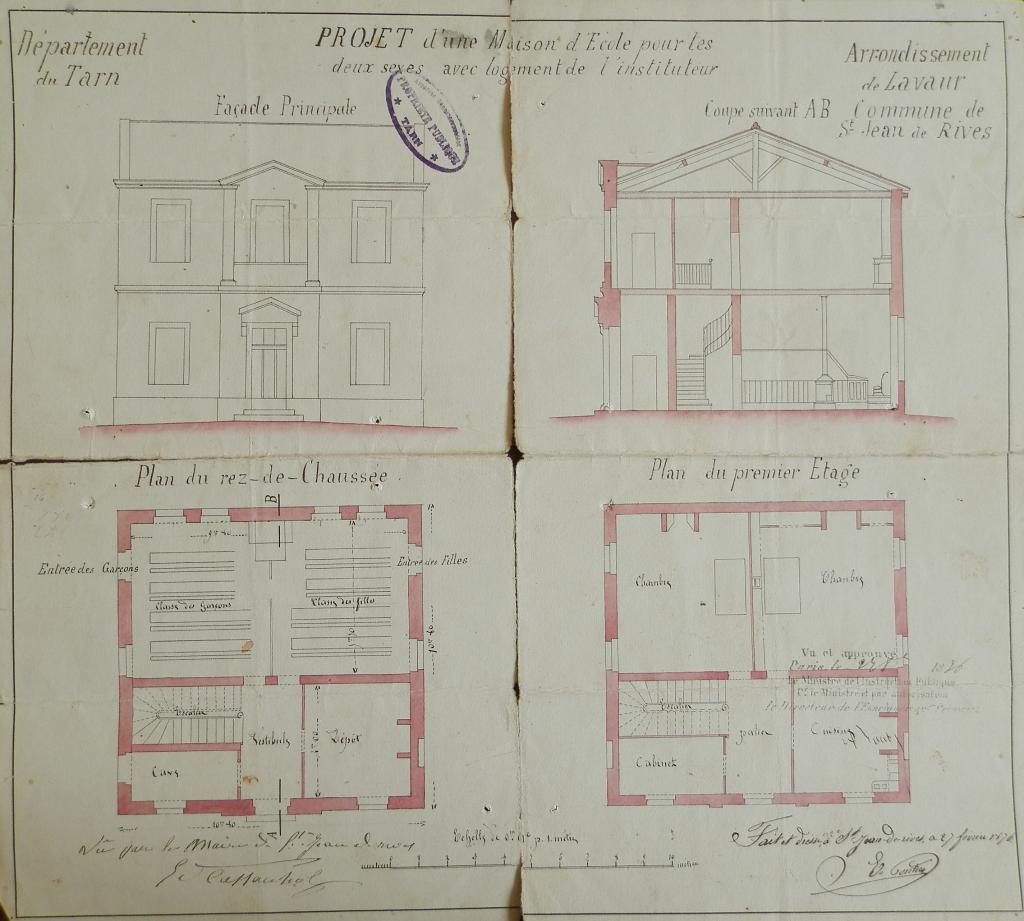 Département
du Tarn
PROJET d'une Maison d'Ecole pour les
deux sexes avec logement de l'instituteur
Arrondissement
de Lavaur
Commune de
St. Jean de Rives
Façade Principale
PROPRIETE PUBLIQUE
TARN
Coupe suivant AB
Plan du rez-de-Chaussée.
B
9m 40
Entrée des Garçons
Entrée des Filles
Classe des Garçons
Classe des filles
10m 40
Escalier
Vestibule
Dépôt
Cave
10m 40
A
Plan du premier Etage
Chambre
Chambre
Vu et approuvé
Paris, le
Le Ministre de l'Instruction Publique
Pr. le Ministre et par autorisation
le Directeur de l'Enseignement Primaire
Escalier
palier
Cuisine
Cabinet
Vu par le Maire de St. Jean de rives
Echelle de p. 1 mètre
1 2 3 4 5 6 7 8 9 10 mètres
Fait et dressé à St Jean de rives, le 27 février 1876